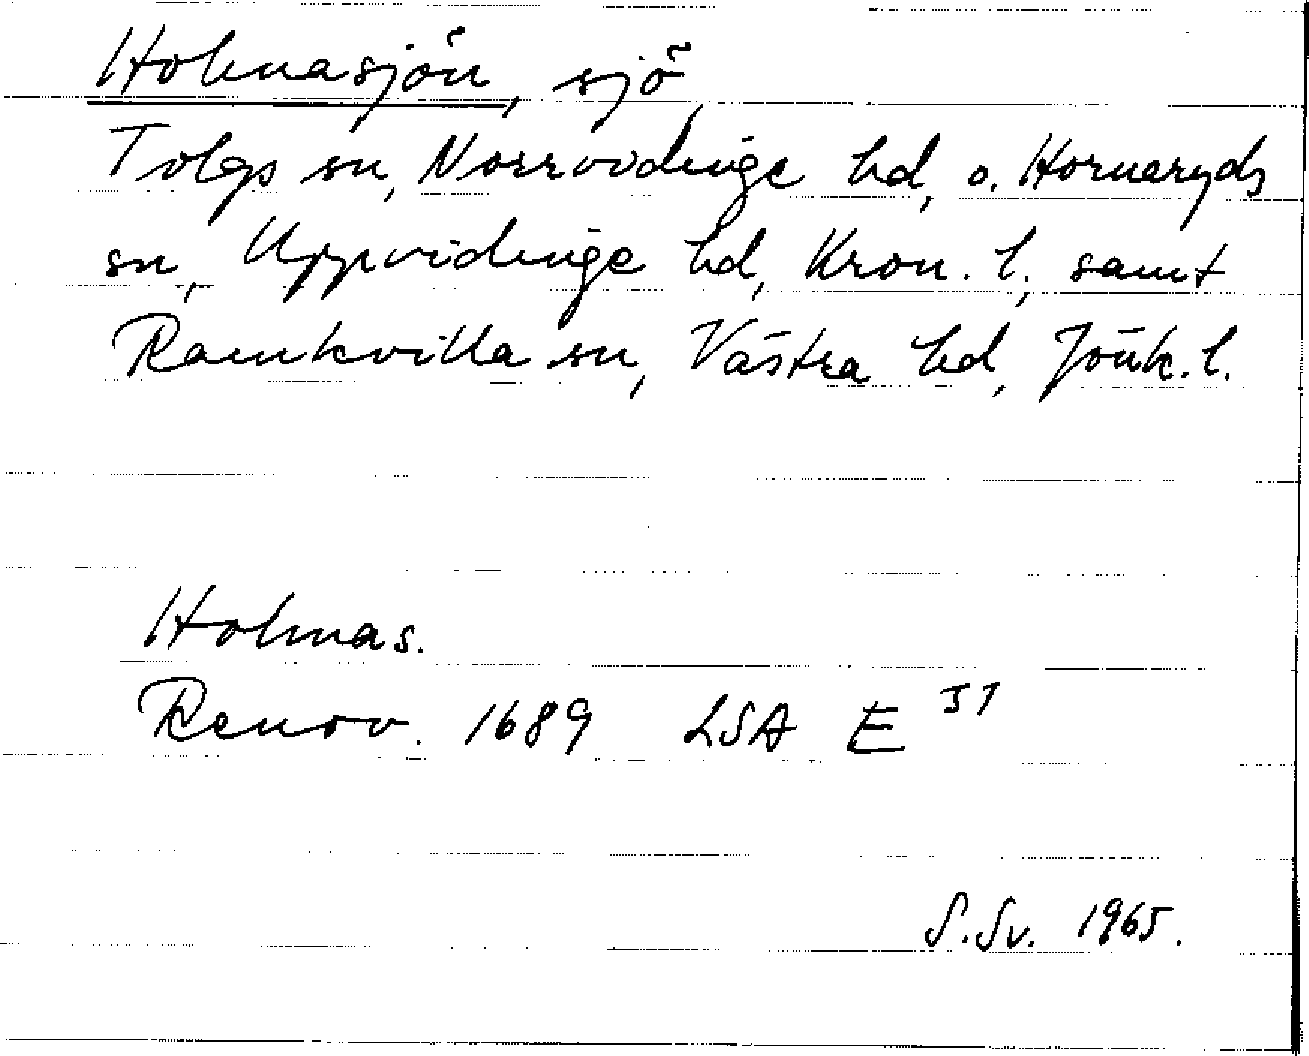 Holmasjön, sjö
Tolgs sn, Norrvidinge hd, o. Hornaryds
sn, Uppvidinge hd, Kron. l., samt
Ramkvilla sn, Västra hd, Jönk. l.
Holmas.
Renov. 1689 LSA E 51
S.Sv. 1965.